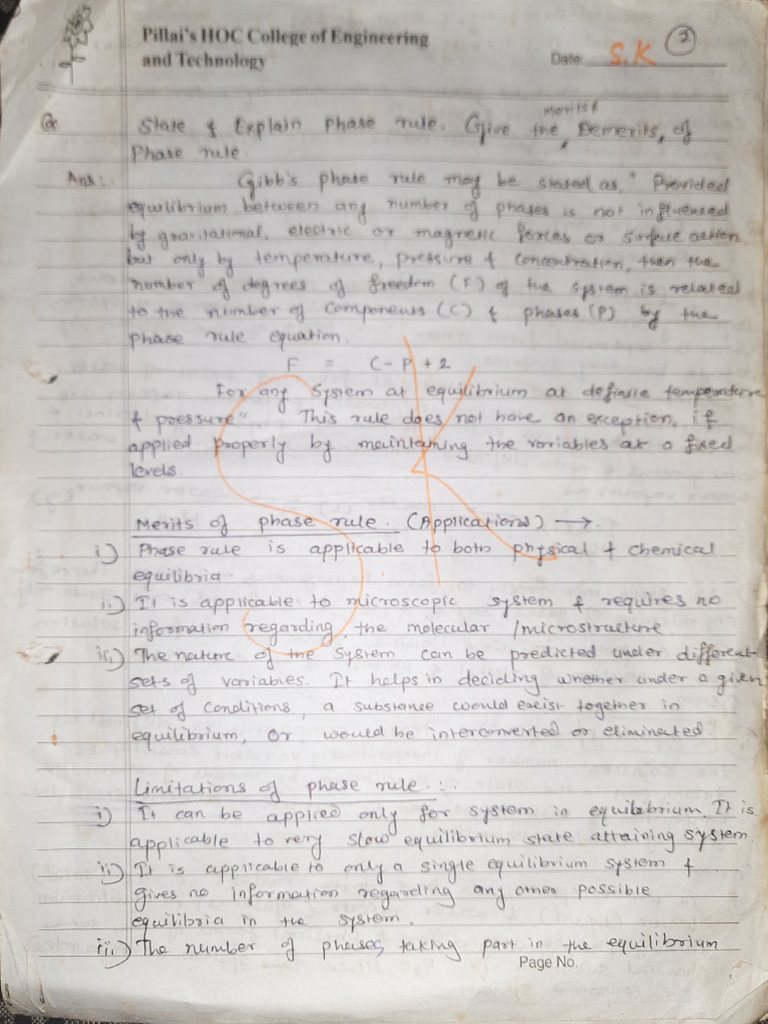 Pillai's HOC College of Engineering
and Technology
Date: S.K 1
Q. State & Explain phase rule. Give the merits & Demerits, of
Phase rule.
Ans:. Gibb's phase rule may be stated as, " Provided
equilibrium between any number of phases is not influenced
by gravitational, electric or magnetic forces or surface action
but only by temperature, pressure & concentration, then the
number of degrees of freedom (F) of the system is related
to the number of components (C) & phases (P) by the
phase rule equation.
F = C - P + 2
For any system at equilibrium at definite temperature
& pressure". This rule does not have an exception, if
applied properly by maintaining the variables at a fixed
levels.
SK
Merits of phase rule. (Applications) →
i) Phase rule is applicable to both physical & chemical
equilibria.
ii) It is applicable to microscopic system & requires no
information regarding the molecular /microstructure
iii) The nature of the system can be predicted under different
sets of variables. It helps in deciding whether under a given
set of conditions, a substance would exist together in
equilibrium, or would be interconverted or eliminated.
Limitations of phase rule :.
i) It can be applied only for system in equilibrium. It is
applicable to very slow equilibrium state attaining system
ii) It is applicable to only a single equilibrium system &
gives no information regarding any other possible
equilibria in the system.
iii) The number of phases, taking part in the equilibrium
Page No.